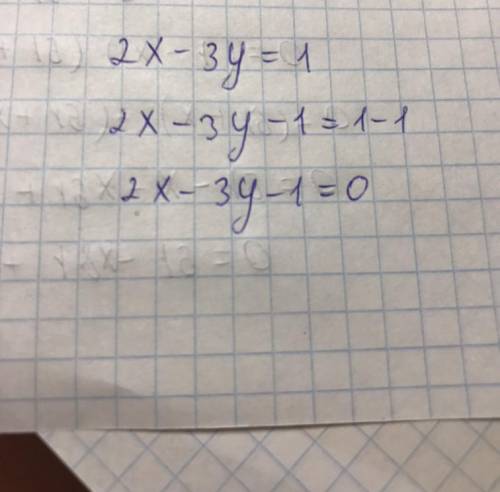 2x - 3y = 1
2x - 3y - 1 = 1 - 1
2x - 3y - 1 = 0